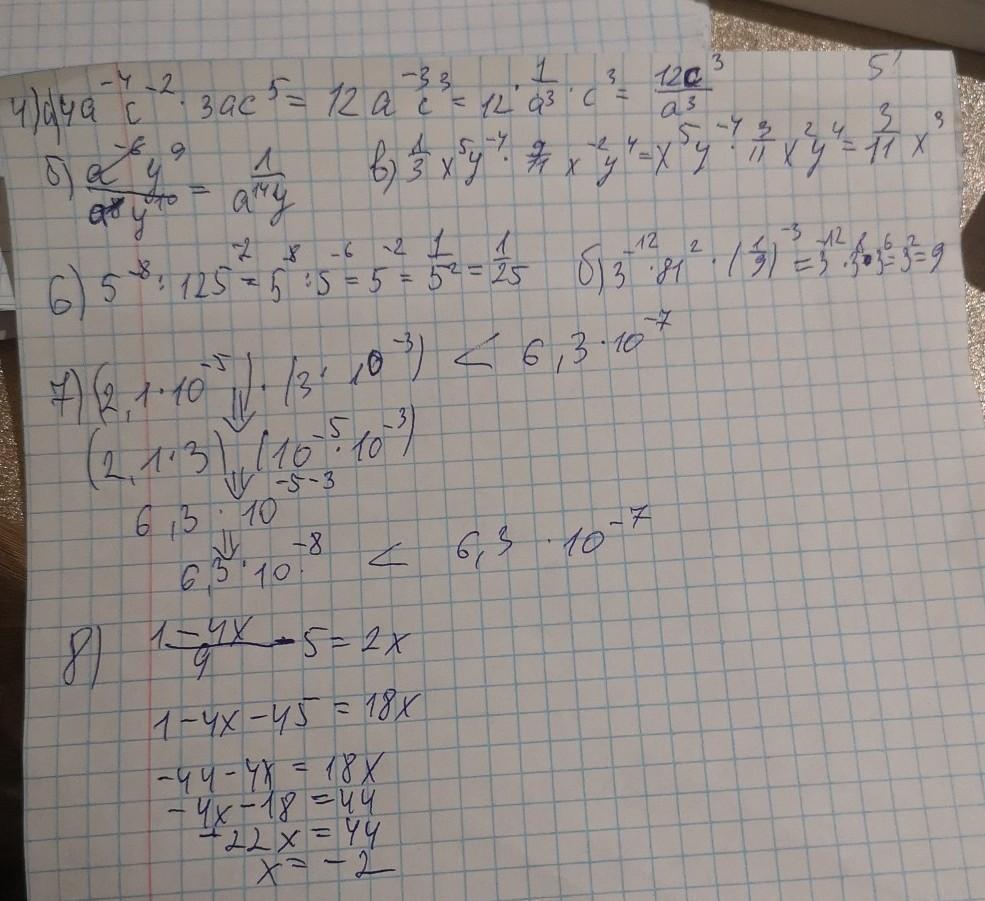 5'
4) a) 4a⁻⁴c⁻² · 3ac⁵ = 12a⁻³c³ = 12 · 1/a³ · c³ = 12c³/a³
б) a⁻⁶y⁹/a⁸y¹⁰ = 1/a¹⁴y в) 1/3 x⁵y⁻⁴ · 9/11 x⁻²y⁴ = x⁵y⁻⁴ · 3/11 x²y⁴ = 3/11 x³
6) 5⁻⁸ : 125⁻² = 5⁻⁸ : 5⁻⁶ = 5⁻² = 1/5² = 1/25 б) 3⁻¹² · 81² · (1/9)⁻³ = 3⁻¹² · 3⁸ · 3⁶ = 3² = 9
7) (2,1 · 10⁻⁵) · (3 · 10⁻³) < 6,3 · 10⁻⁷
(2,1 · 3) (10⁻⁵ · 10⁻³)
6,3 · 10⁻⁵⁻³
6,3 · 10⁻⁸ < 6,3 · 10⁻⁷
8) 1 - 4x/9 - 5 = 2x
1 - 4x - 45 = 18x
-44 - 4x = 18x
-4x - 18 = 44
-22x = 44
x = -2